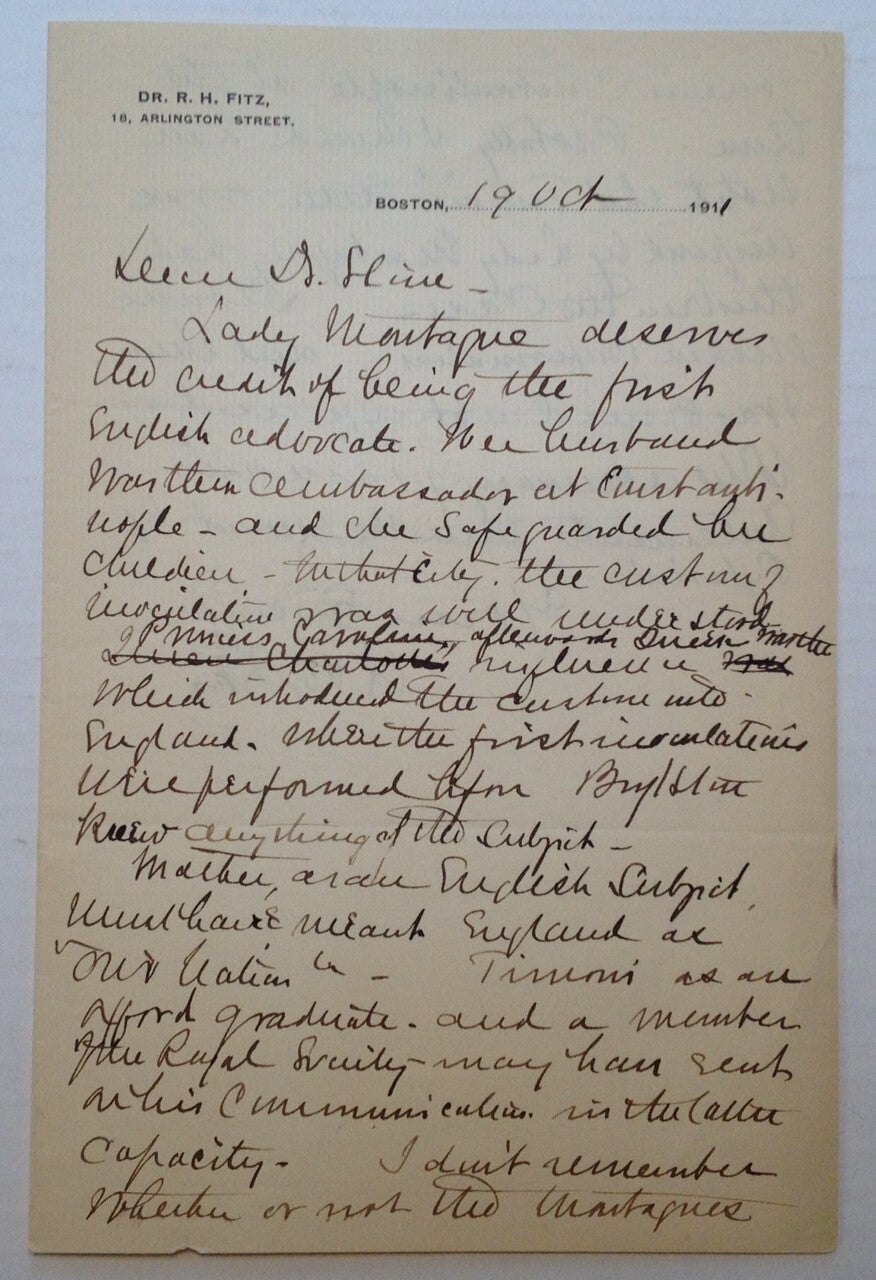 DR. R. H. FITZ,
18, ARLINGTON STREET.
BOSTON, 19 Oct 1911
Dear Dr.
Lady Montague deserves
the credit of being the first
English advocate. Her husband
was then ambassador at Constanti-
nople - and she safeguarded her
children - In that City. the custom of
inoculation was well understood
Princess Caroline, afterwards Queen was the
Queen Charlotte's influence was
which introduced the custom into
England. where the first inoculations
were performed before Boylston
knew anything of the subject -
Mather, as an English subject,
must have meant England as
"our Nation" - Timoni as an
Oxford graduate - and a member
of the Royal Society - may have sent
in his Communication in the latter
capacity - I don't remember
whether or not the Montagues